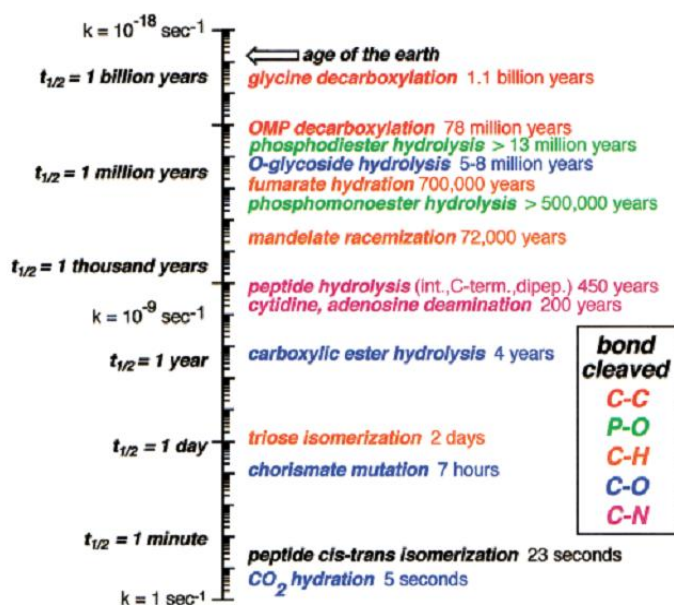 k = 10⁻¹⁸ sec⁻¹
age of the earth
t₁/₂ = 1 billion years
glycine decarboxylation 1.1 billion years
OMP decarboxylation 78 million years
phosphodiester hydrolysis > 13 million years
O-glycoside hydrolysis 5-8 million years
t₁/₂ = 1 million years
fumarate hydration 700,000 years
phosphomonoester hydrolysis > 500,000 years
mandelate racemization 72,000 years
t₁/₂ = 1 thousand years
peptide hydrolysis (int.,C-term.,dipep.) 450 years
cytidine, adenosine deamination 200 years
k = 10⁻⁹ sec⁻¹
t₁/₂ = 1 year
carboxylic ester hydrolysis 4 years
triose isomerization 2 days
t₁/₂ = 1 day
chorismate mutation 7 hours
t₁/₂ = 1 minute
peptide cis-trans isomerization 23 seconds
CO₂ hydration 5 seconds
k = 1 sec⁻¹
bond
cleaved
C-C
P-O
C-H
C-O
C-N